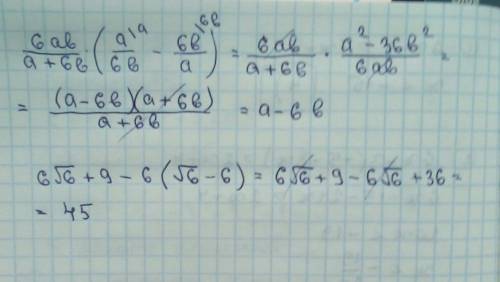 6ab/(a+6b) · (a/6b ᐠᵃ − 6b/a ᐠ⁶ᵇ) = 6ab/(a+6b) · (a²−36b²)/6ab =
= (a−6b)(a+6b)/(a+6b) = a−6b
6√6 + 9 − 6(√6 − 6) = 6√6 + 9 − 6√6 + 36 =
= 45